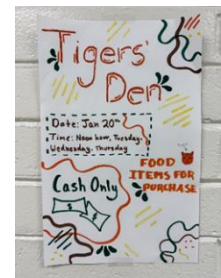 Tigers'
Den
Date: Jan 20th
Time: Noon hour, Tuesday,
Wednesday, Thursday
FOOD
ITEMS FOR
PURCHASE
Cash Only